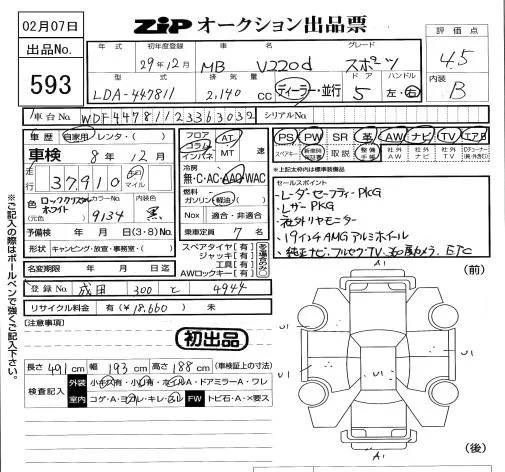 02月07日
ZIP オークション出品票
評価点
4.5
内装
B
出品No.
593
年式 初年度登録 車名 グレード
29年12月 MB V220d スポーツ
型式 排気量 ドア ハンドル
LDA-447811 2,140 cc ディーラー・並行 5 左・右
車台No. WDF44781123363032 シリアルNo.
車歴 自家用・レンタ・( )
車検 8年 12月
走行 37,910 km マイル
色 ロッククリスタルホワイト カラーNo. 内装色
(元色) 9134 黒
予備検 年 月 日(3・8)No.
形状 キャンピング・放宣・事務室・( )
名変期限 年 月 日迄
登録No. 成田 300 と 4944
リサイクル料金 有(¥18,660) 未
フロア コラム インパネ AT MT 速
冷房
無・C・AC・AAC・WAC
燃料
ガソリン・軽油・( )
Nox 適合・非適合
乗車定員 7 名
スペアタイヤ[有]
ジャッキ[有]
工具[有]
AWロックキー[有]
PS PW SR 革 AW ナビ TV エアB
スペアキー 新車時保証書 取説 整備手帳 社外AW 社外ナビ 社外TV
※上記太枠内は標準装備品
セールスポイント
・レーダーセーフティPKG
・レザーPKG
・社外リヤモニター
・19インチAMGアルミホイール
・純正ナビ、フルセグTV、360度カメラ、ETC
[注意事項]
初出品
長さ 491cm 幅 193cm 高さ 188cm (車検証上の寸法)
検査記入 外装 小キズ有・小凹有・ホイルA・ドアミラーA・ワレ
室内 コゲ・A・ヨゴレ・キレ・スレ FW トビ石・A・×要ス
※ご記入の際はボールペンで強くご記入下さい。
(前)
A1
U1
U1
U1
A1
(後)